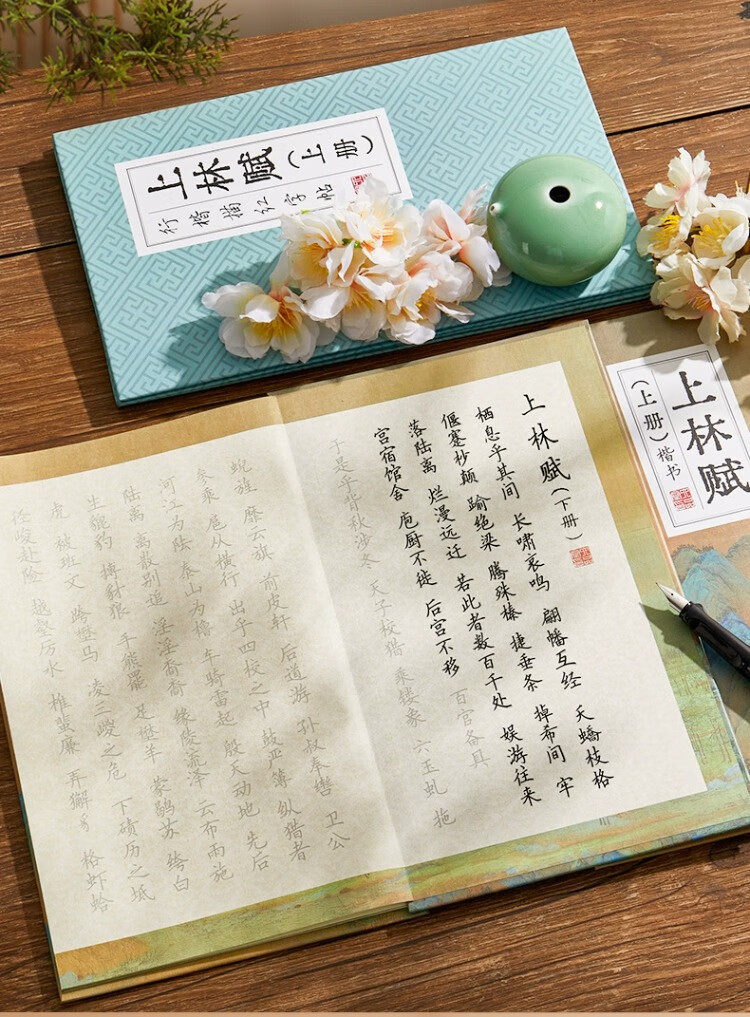 上林赋（上册）
行楷描红字帖
上林赋
（上册）楷书
上林赋（下册）
栖息乎其间 长啸哀鸣 翩幡互经 夭蟜枝格
偃蹇杪颠 踰绝梁 腾殊榛 捷垂条 掉希间 牢
落陆离 烂漫远迁 若此者数百千处 娱游往来
宫宿馆舍 庖厨不徙 后宫不移 百官备具
于是乎背秋涉冬 天子校猎 乘镂象 六玉虬 拖
蜺旌 靡云旗 前皮轩 后道游 孙叔奉辔 卫公
参乘 扈从横行 出乎四校之中 鼓严薄 纵猎者
河江为阹 泰山为橹 车骑雷起 殷天动地 先后
陆离 离散别追 淫淫裔裔 缘陵流泽 云布雨施
生貔豹 搏豺狼 手熊罴 足壄羊 蒙鹖苏 绔白
虎 被班文 跨壄马 凌三嵕之危 下碛历之坻
径峻赴险 越壑厉水 椎蜚廉 弄獬豸 格虾蛤